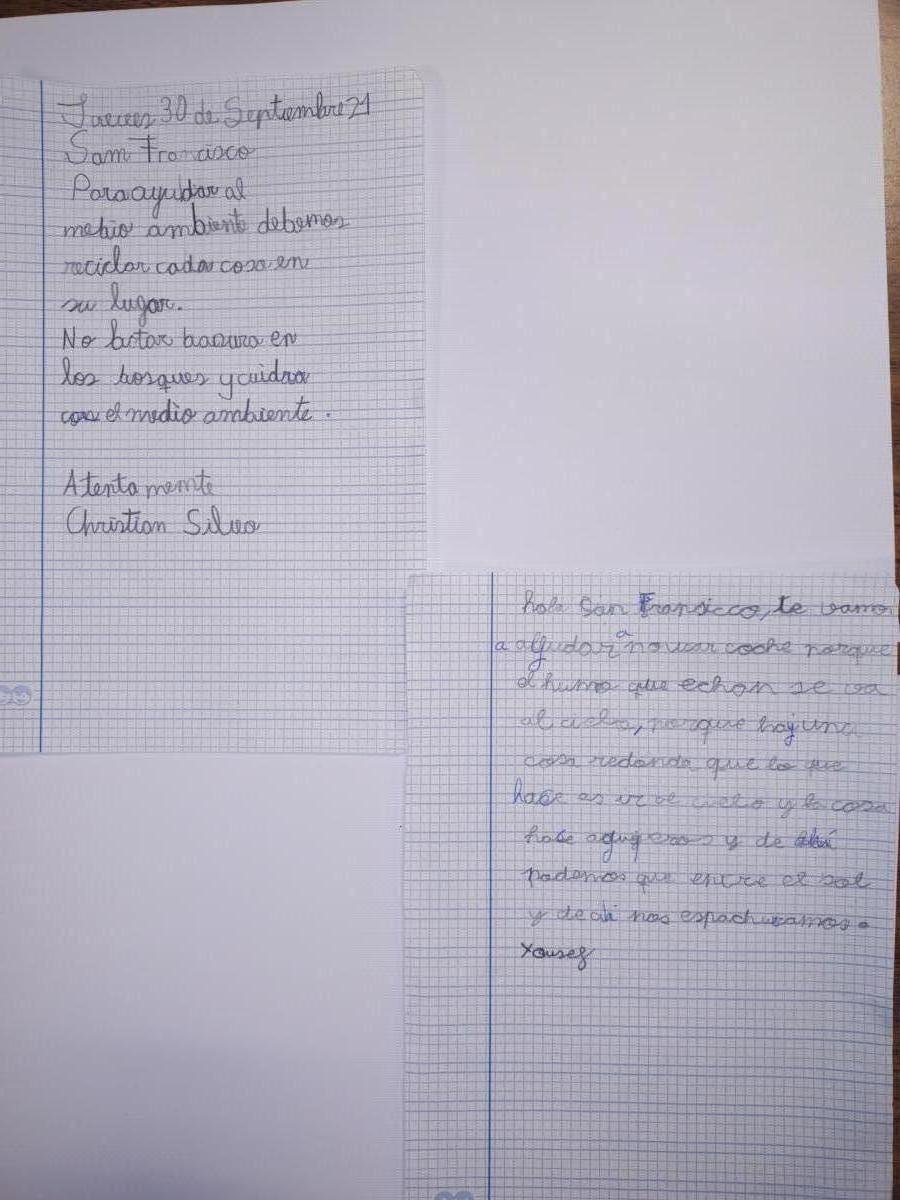 Jueves 30 de Septiembre 21
Sam Francisco
Para ayudar al
medio ambiente debemos
reciclar cada cosa en
su lugar.
No botar basura en
los bosques y cuidra
con el medio ambiente.
Atentamente
Christian Silva
hola San Fransicco, te vamo
a alludar a no usar coche porque
el humo que echan se va
al cielo, porque hay una
cosa redonda que lo que
hase es ve cielo y la cosa
hase agujeros y de ahí
podemos que entre el sol
y de ahi nos espachurramos.
Yousef